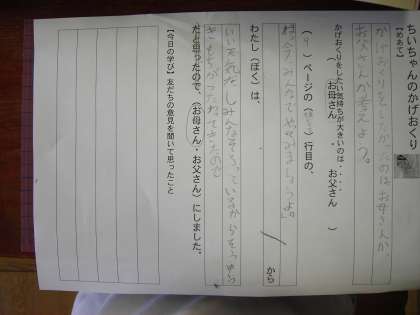 ちいちゃんのかげおくり
【めあて】
かげおくりをしたかったのはお母さんか
お父さんか考えよう。
かげおくりをしたい気持ちが大きいのは・・・・
（お母さん・お父さん）
（ ）ページの（ ）行目の、
「今、みんなでやってみましょうよ。」
から
わたし（ぼく）は、
いい天気だしみんなそろっているからそう
きもちがつたわってきたので
だと思ったので、（お母さん・お父さん）にしました。
【今日の学び】友だちの意見を聞いて思ったこと